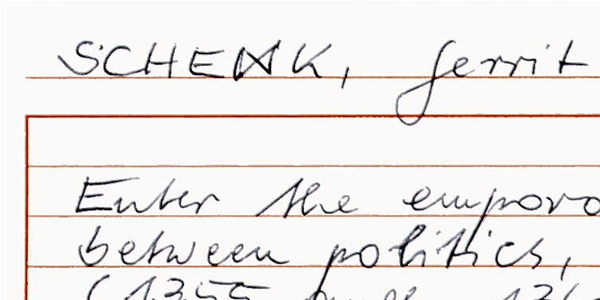 SCHENK, Gerrit
Enter the emporo
between politics,
(1355 and